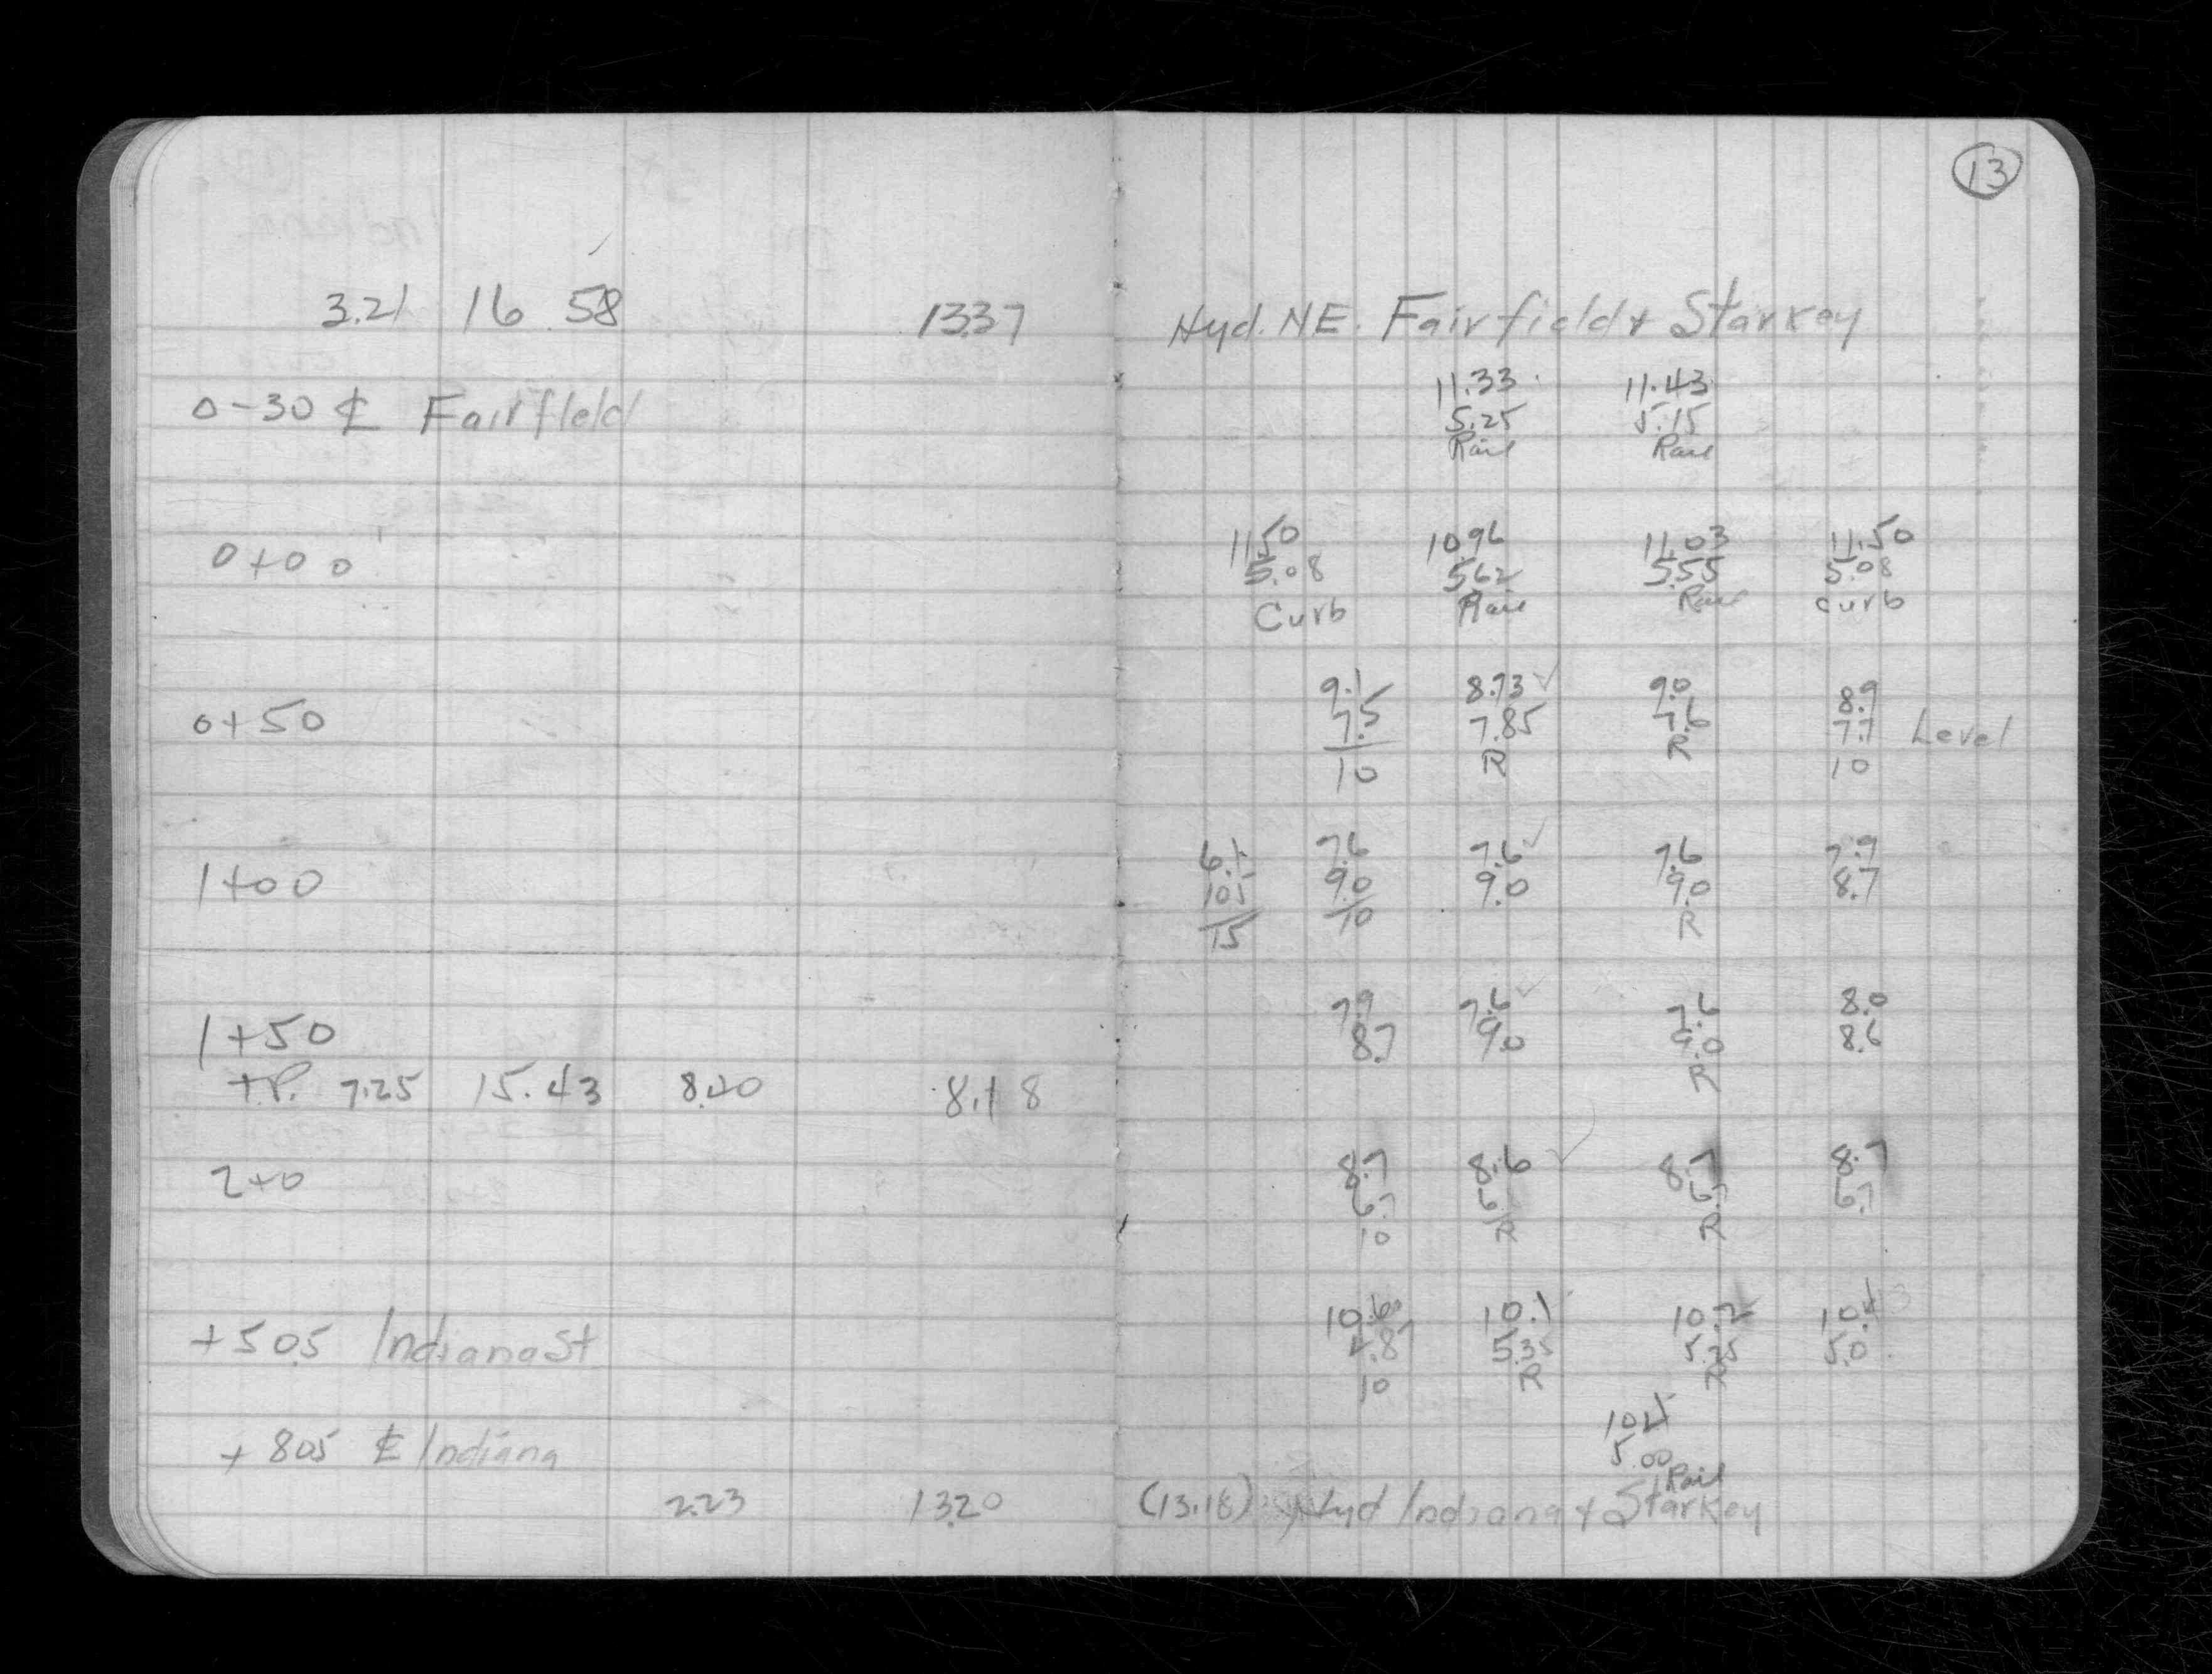 13
3.21 16.58 13.37 Hyd. N.E. Fairfield & Starkey
11.33 11.43
0-30 ℄ Fairfield 5.25 5.15
Rail Rail
11.50 10.96 11.03 11.50
0+00 5.08 5.62 5.55 5.08
Curb Rail Rail curb
9.1 8.73 ✓ 9.0 8.9
0+50 7.5 7.85 7.6 7.7 Level
10 R R 10
6.1 7.6 7.6 ✓ 7.6 7.9
1+00 10.5 9.0 9.0 9.0 8.7
15 10 R
7.9 7.6 ✓ 7.6 8.0
1+50 8.7 9.0 9.0 8.6
T.P. 7.25 15.43 8.40 8.18 R
8.7 8.6 ✓ 8.7 8.7
2+0 6.7 6.7 6.7
10 R R
10.6 10.1 10.2 10.4
+50.5 Indiana St 4.87 5.35 5.25 5.0
10 R R
10.4
+80.5 ℄ Indiana 5.00
Rail
2.23 13.20 (13.18) Hyd Indiana & Starkey